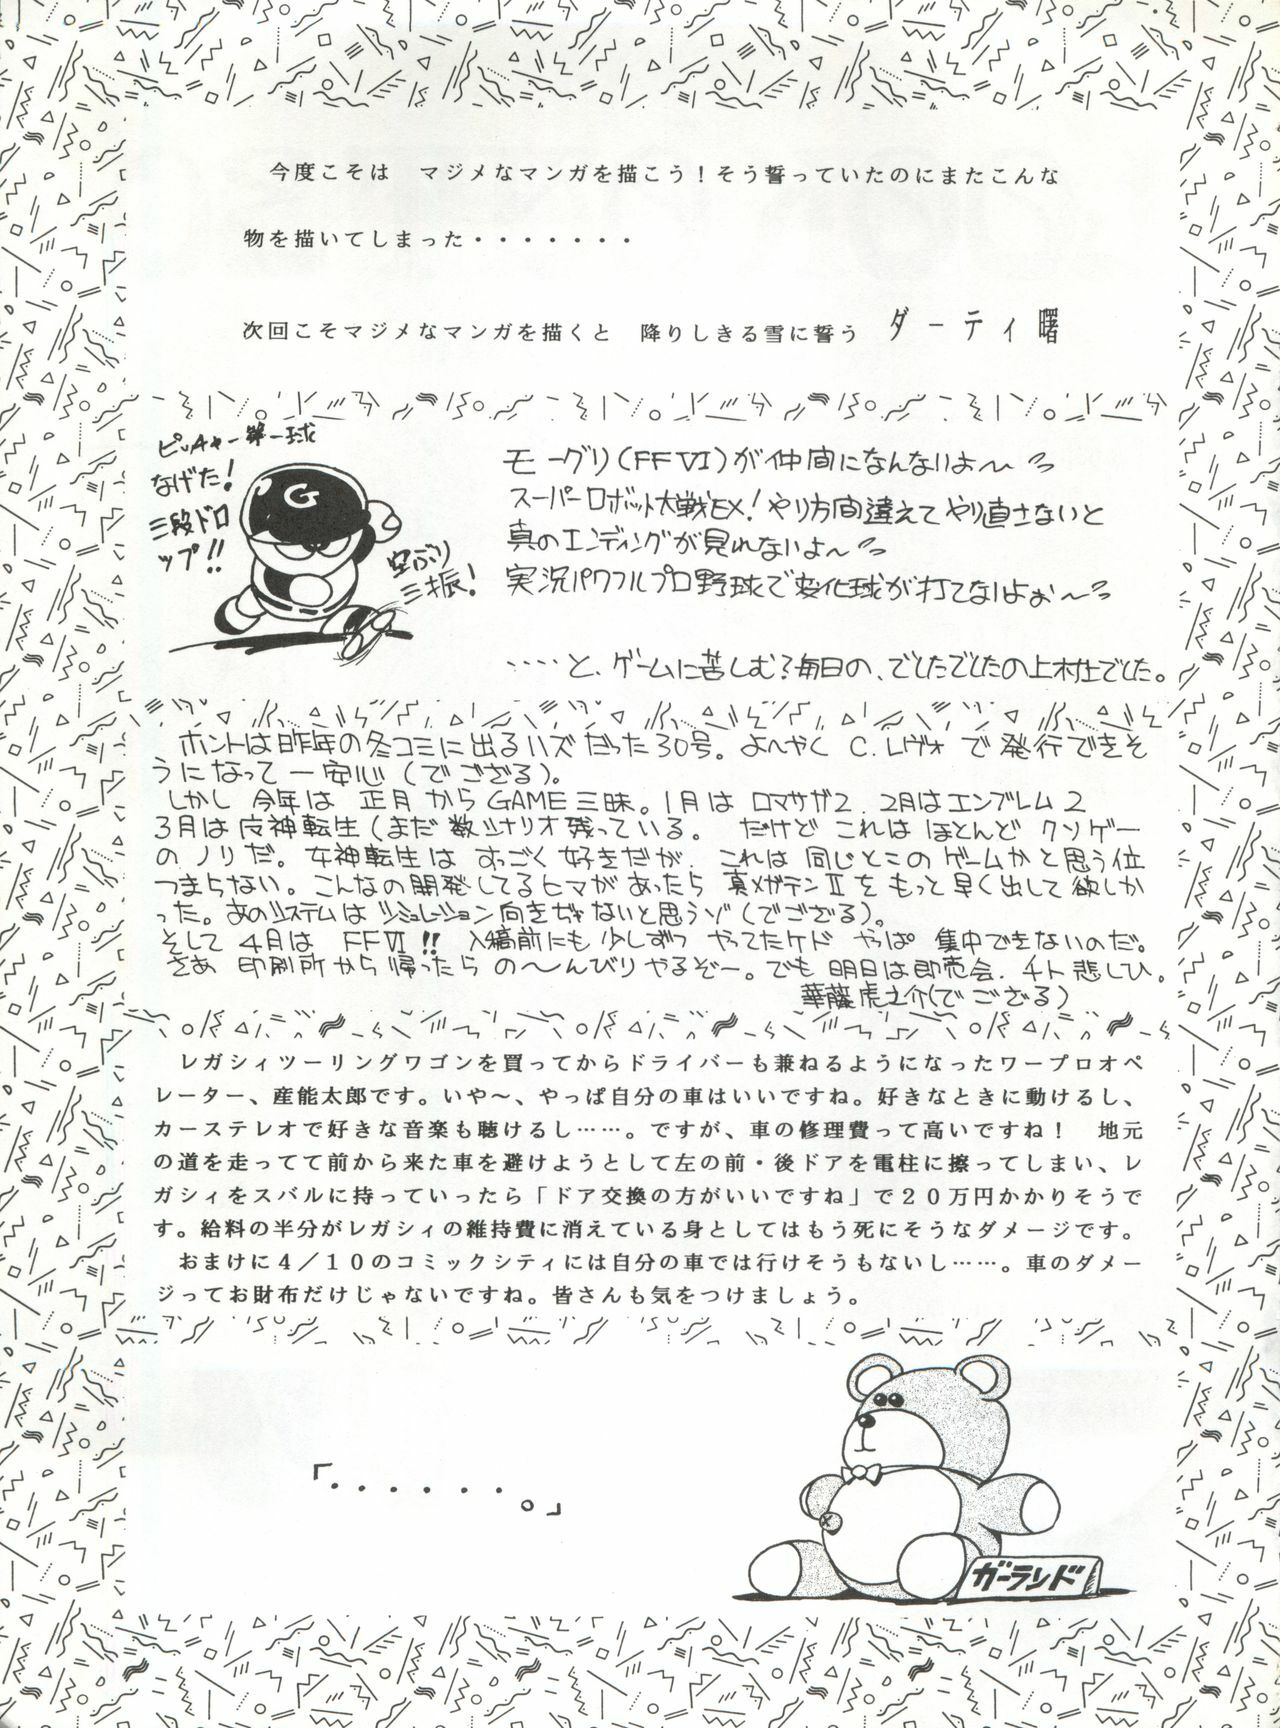 今度こそは　マジメなマンガを描こう！そう誓っていたのにまたこんな
物を描いてしまった・・・・・・・
次回こそマジメなマンガを描くと　降りしきる雪に誓う　ダーティ曙
ピッチャー第一球
なげた！
三段ドロ
ップ!!
G
空ぶり
三振！
モーグリ（FFⅥ）が仲間になんないよ〜
スーパーロボット大戦EX！やり方間違えてやり直さないと
真のエンディングが見れないよ〜
実況パワフルプロ野球で変化球が打てないよぉ〜
‥‥と、ゲームに苦しむ？毎日の、でしたでしたの上村仕でした。
ホントは昨年の冬コミに出るハズだった30号。よーやく C.レヴォ で 発行できそ
うになって一安心（でござる）。
しかし 今年は 正月から GAME三昧。1月は ロマサガ2、2月はエンブレム2
3月は女神転生（まだ数シナリオ残っている。 だけど これは ほとんど クソゲー
の ノリだ。女神転生は すっごく好きだが、これは 同じとこの ゲームかと思う位
つまらない。こんなの開発してるヒマがあったら 真メガテンⅡを もっと 早く出して欲しか
った。あのシステムは シミュレーション向きぢゃないと思うゾ（でござる）。
そして 4月は FFⅥ!! 入稿前にも 少しずつ やってたケド やっぱ 集中できないのだ。
さあ 印刷所から帰ったら の〜んびりやるぞー。でも 明日は即売会、チト悲しひ。
華藤虎之介（でござる）
レガシィツーリングワゴンを買ってからドライバーも兼ねるようになったワープロオペ
レーター、産能太郎です。いや〜、やっぱ自分の車はいいですね。好きなときに動けるし、
カーステレオで好きな音楽も聴けるし……。ですが、車の修理費って高いですね！　地元
の道を走ってて前から来た車を避けようとして左の前・後ドアを電柱に擦ってしまい、レ
ガシィをスバルに持っていったら「ドア交換の方がいいですね」で２０万円かかりそうで
す。給料の半分がレガシィの維持費に消えている身としてはもう死にそうなダメージです。
おまけに４／１０のコミックシティには自分の車では行けそうもないし……。車のダメー
ジってお財布だけじゃないですね。皆さんも気をつけましょう。
「・・・・・・・。」
ガーランド